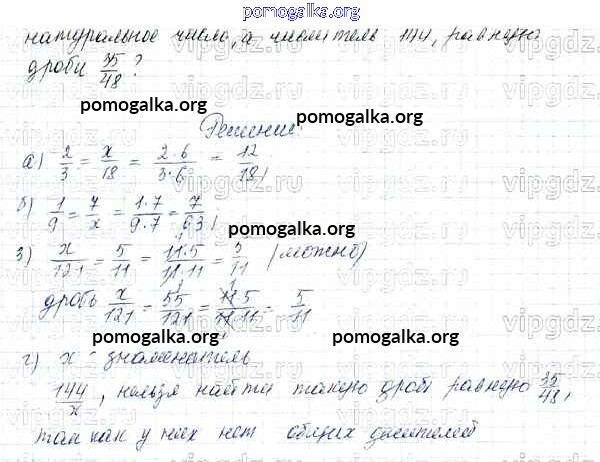 pomogalka.org
натуральное число, а числитель 144, равную
дроби 35/48 ?
pomogalka.org pomogalka.org
Решение:
а) 2/3 = x/18 = 2·6/3·6 = 12/18,
vipgdz.ru vipgdz.ru
б) 1/9 = 7/x = 1·7/9·7 = 7/63,
pomogalka.org
з) x/121 = 5/11 = 11·5/11·11 = 5/11 (можно)
vipgdz.ru vipgdz.ru
дробь x/121 = 55/121 = 11·5/11·11 = 5/11
pomogalka.org pomogalka.org
г) x - знаменатель
144/x, нельзя найти такую дробь равную 35/48,
pomogalka.org
так как у них нет общих делителей